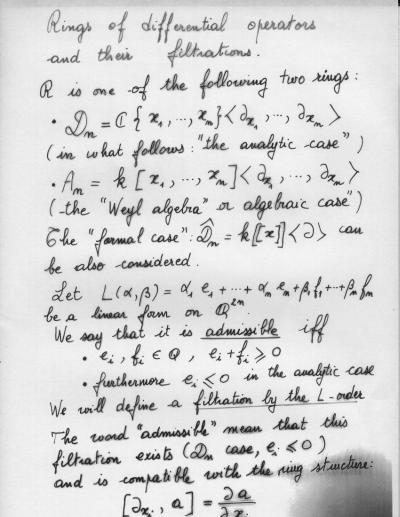 Rings of differential operators
and their filtrations.
R is one of the following two rings:
• 𝒟ₙ = ℂ{x₁, ..., xₙ}<∂x₁, ..., ∂xₙ>
(in what follows: "the analytic case")
• Aₙ = k[x₁, ..., xₙ]<∂x₁, ..., ∂xₙ>
(the "Weyl algebra" or algebraic case")
The "formal case": 𝒟̂ₙ = k[[x]]<∂> can
be also considered.
Let L(α,β) = α₁e₁ + ··· + αₙeₙ + β₁f₁ + ··· + βₙfₙ
be a linear form on ℚ²ⁿ
We say that it is admissible iff
• eᵢ, fᵢ ∈ ℚ, eᵢ + fᵢ ⩾ 0
• furthermore eᵢ ⩽ 0 in the analytic case
We will define a filtration by the L-order
The word "admissible" mean that this
filtration exists (𝒟ₙ case, eᵢ ⩽ 0)
and is compatible with the ring structure:
[∂xᵢ, a] = ∂a/∂xᵢ